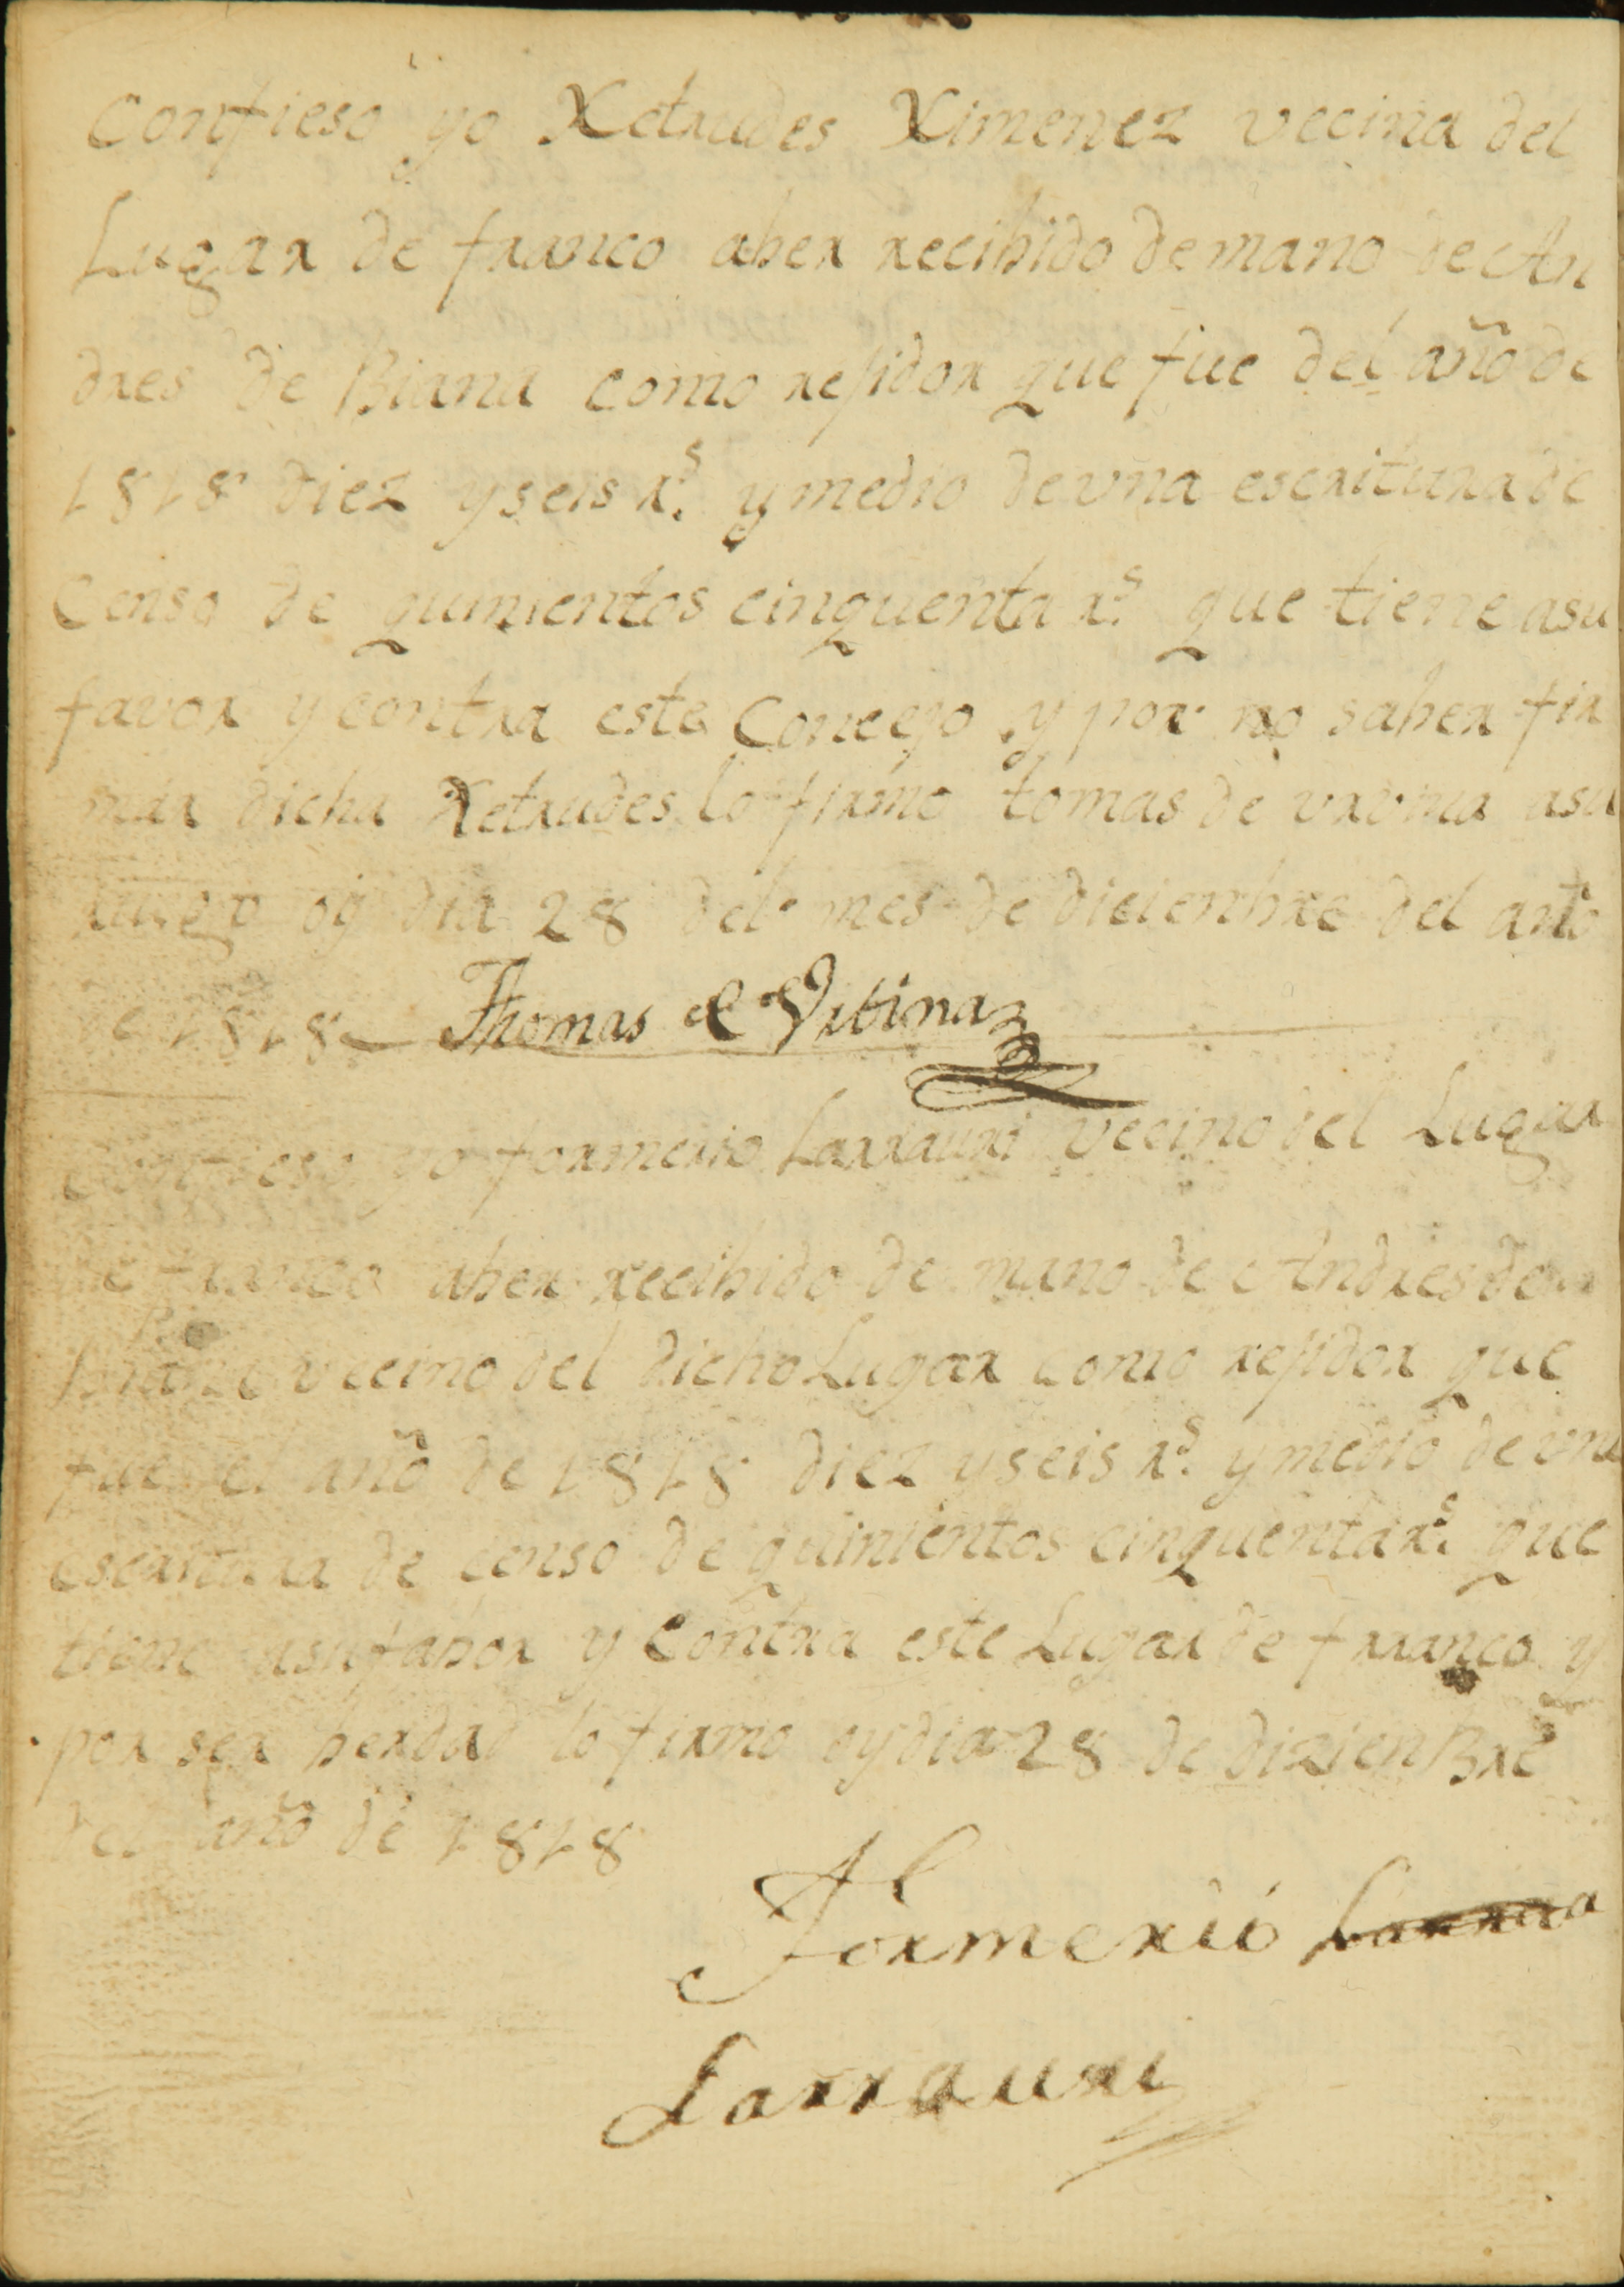 Confieso yo Xetrudes Ximenez vecina del
Lugar de franco aber recibido de mano de An
dres de Biana como rejidor que fue del año de
1818 diez y seis rs. y medio de vna escritura de
Censo de quinientos cinquenta rs. que tiene asu
favor y contra este Concejo y por no saber fir
mar dicha Xetrudes lo firmo tomas de vrvina asu
ruego oy dia 28 del mes de diciembre del año
de 1818 Thomas de Vrbina
Confieso yo formerio Larrauri vecino del Lugar
de franco aber recibido de mano de Andres de
Biana vecino del dicho Lugar como rejidor que
fue el año de 1818 diez y seis rs. y medio de vna
escritura de censo de quinientos cinquenta rs. que
tiene asu fabor y Contra este Lugar de franco y
por ser berdad lo firmo oy dia 28 de dizienBre
del año de 1818
Formerio
Larrauri